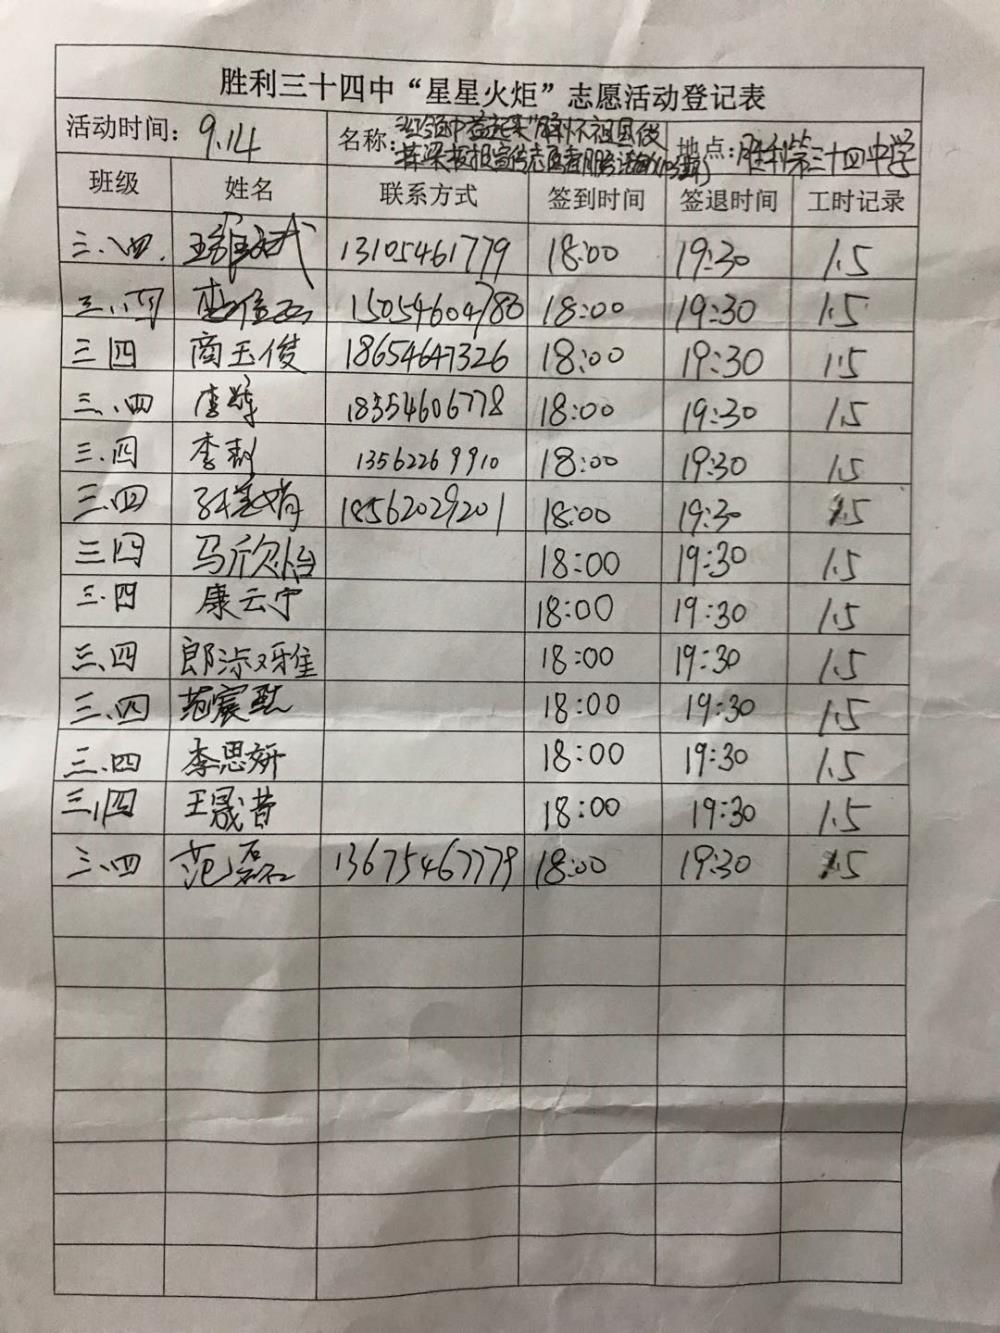 胜利三十四中“星星火炬”志愿活动登记表
活动时间：9.14 名称："红领巾 胸怀祖国 地点：胜利第三十四中学
板报宣传志愿者服务活动
班级 姓名 联系方式 签到时间 签退时间 工时记录
三.四 13105461779 18:00 19:30 1.5
三.四 15054604780 18:00 19:30 1.5
三四 商玉俊 18654647326 18:00 19:30 1.5
三.四 李 18354606778 18:00 19:30 1.5
三.四 李 13562269910 18:00 19:30 1.5
三.四 18562029201 18:00 19:30 1.5
三四 马欣怡 18:00 19:30 1.5
三.四 康云宁 18:00 19:30 1.5
三.四 郎 18:00 19:30 1.5
三.四 范宸 18:00 19:30 1.5
三.四 李思妍 18:00 19:30 1.5
三.四 王晟昔 18:00 19:30 1.5
三.四 范磊 13675467779 18:00 19:30 1.5